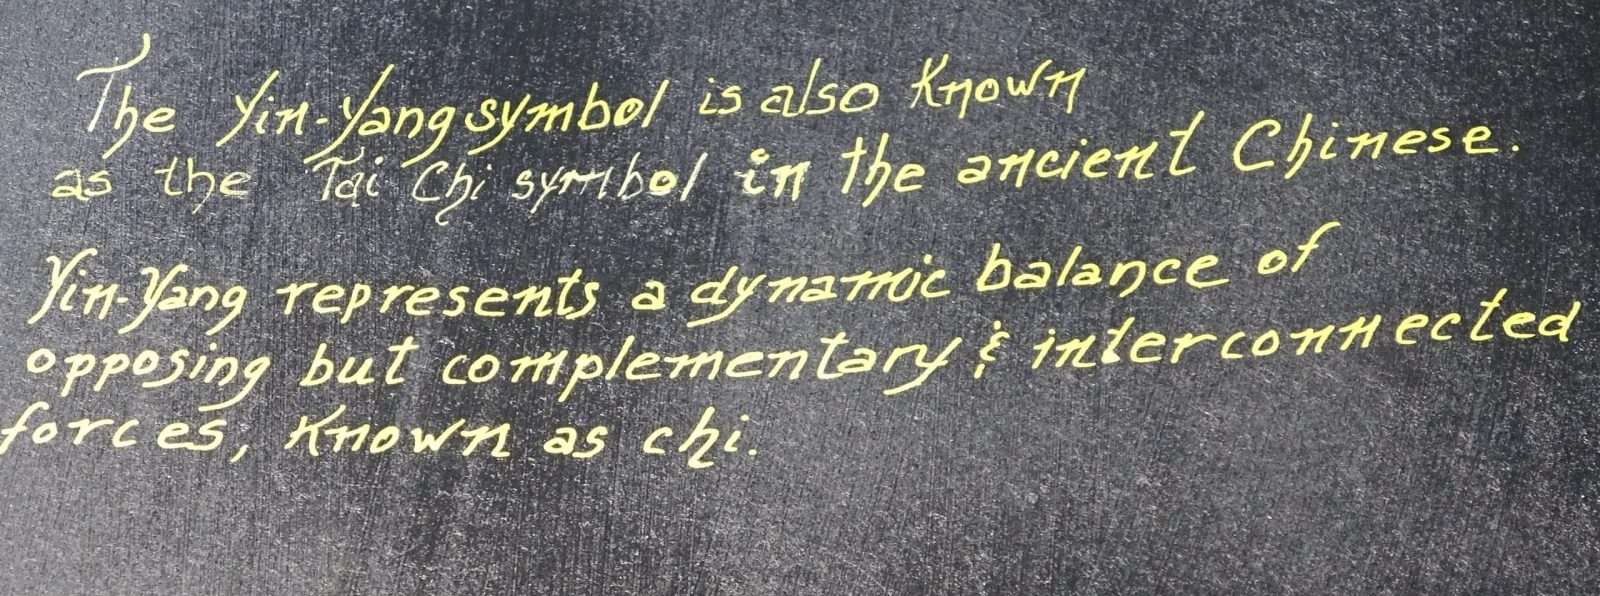 The Yin-Yang symbol is also Known
as the Tai Chi symbol in the ancient Chinese.
Yin-Yang represents a dynamic balance of
opposing but complementary & interconnected
forces, Known as chi.